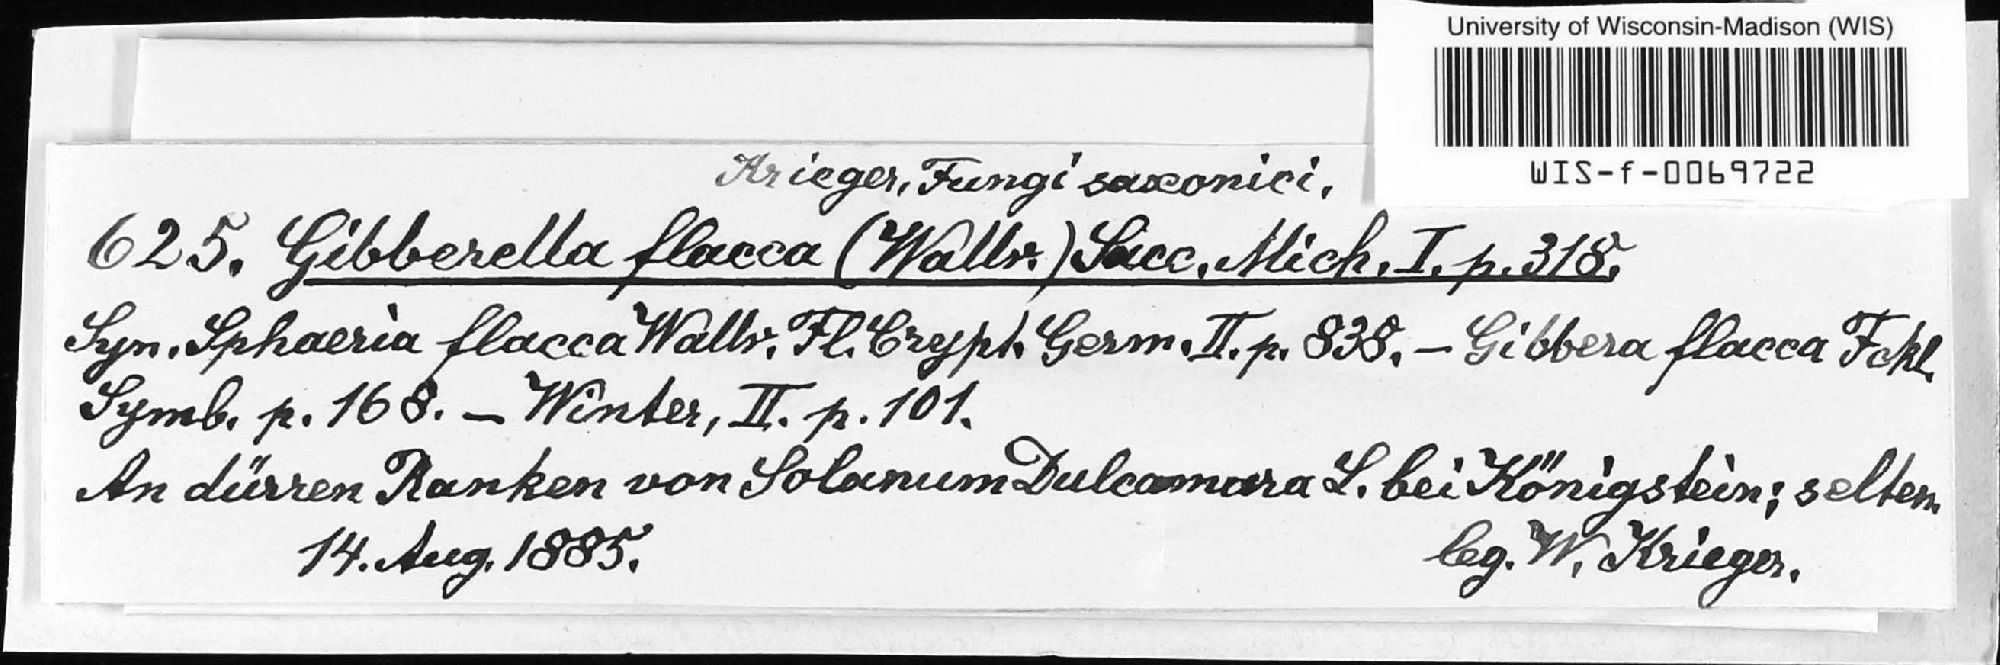 University of Wisconsin-Madison (WIS)
WIS-f-0069722
Krieger, Fungi saxonici.
625. Gibberella flacca (Wallr.) Sacc. Mich. I. p. 318.
Syn. Sphaeria flacca Wallr. Fl. Crypt. Germ. II. p. 838. – Gibbera flacca Fckl.
Symb. p. 168. – Winter, II. p. 101.
An dürren Ranken von Solanum Dulcamara L. bei Königstein; selten
14. Aug. 1885. leg. W. Krieger.